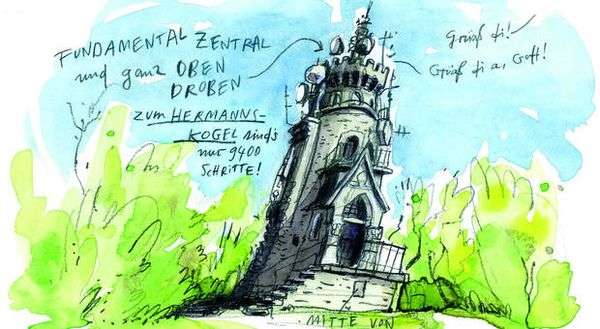 FUNDAMENTAL ZENTRAL
und ganz OBEN
DROBEN
zum HERMANNS-
KOGEL sind's
nur 9400
SCHRITTE!
Grüaß di!
Grüaß di a, Gott!
MITTE VON